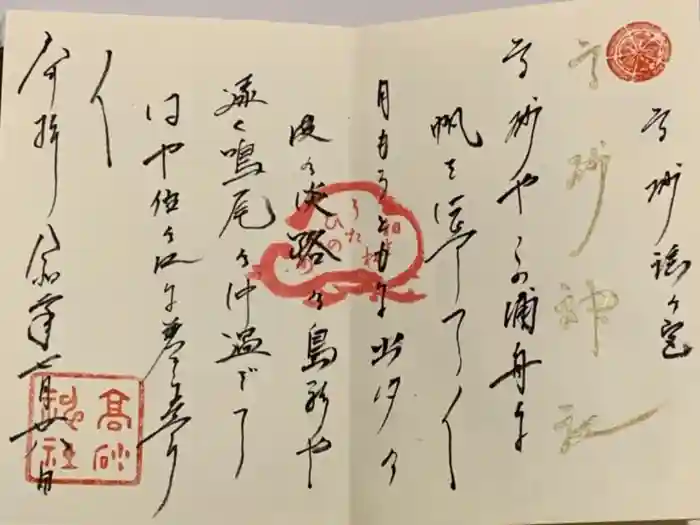 高砂謡の宮
高砂神社
高砂やこの浦舟に
帆を揚げて〱
月もろともに出汐の
波の淡路の島影や
遠く鳴尾の沖過ぎて
はや住の江に着きにけり
〱
奉拝 令和 年七月廿 日
うた
ひの
高砂
神社